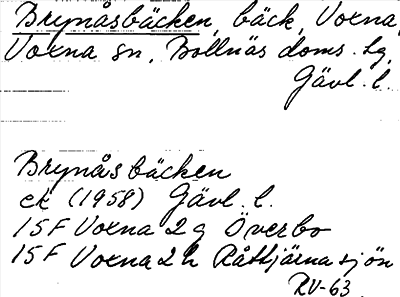 Brynåsbäcken, bäck, Voxna,
Voxna sn, Bollnäs doms. lg,
Gävl. l.
Brynåsbäcken
ek (1958) Gävl. l.
15F Voxna 2 g Överbo
15F Voxna 2 h Råttjärnasjön
RV-63